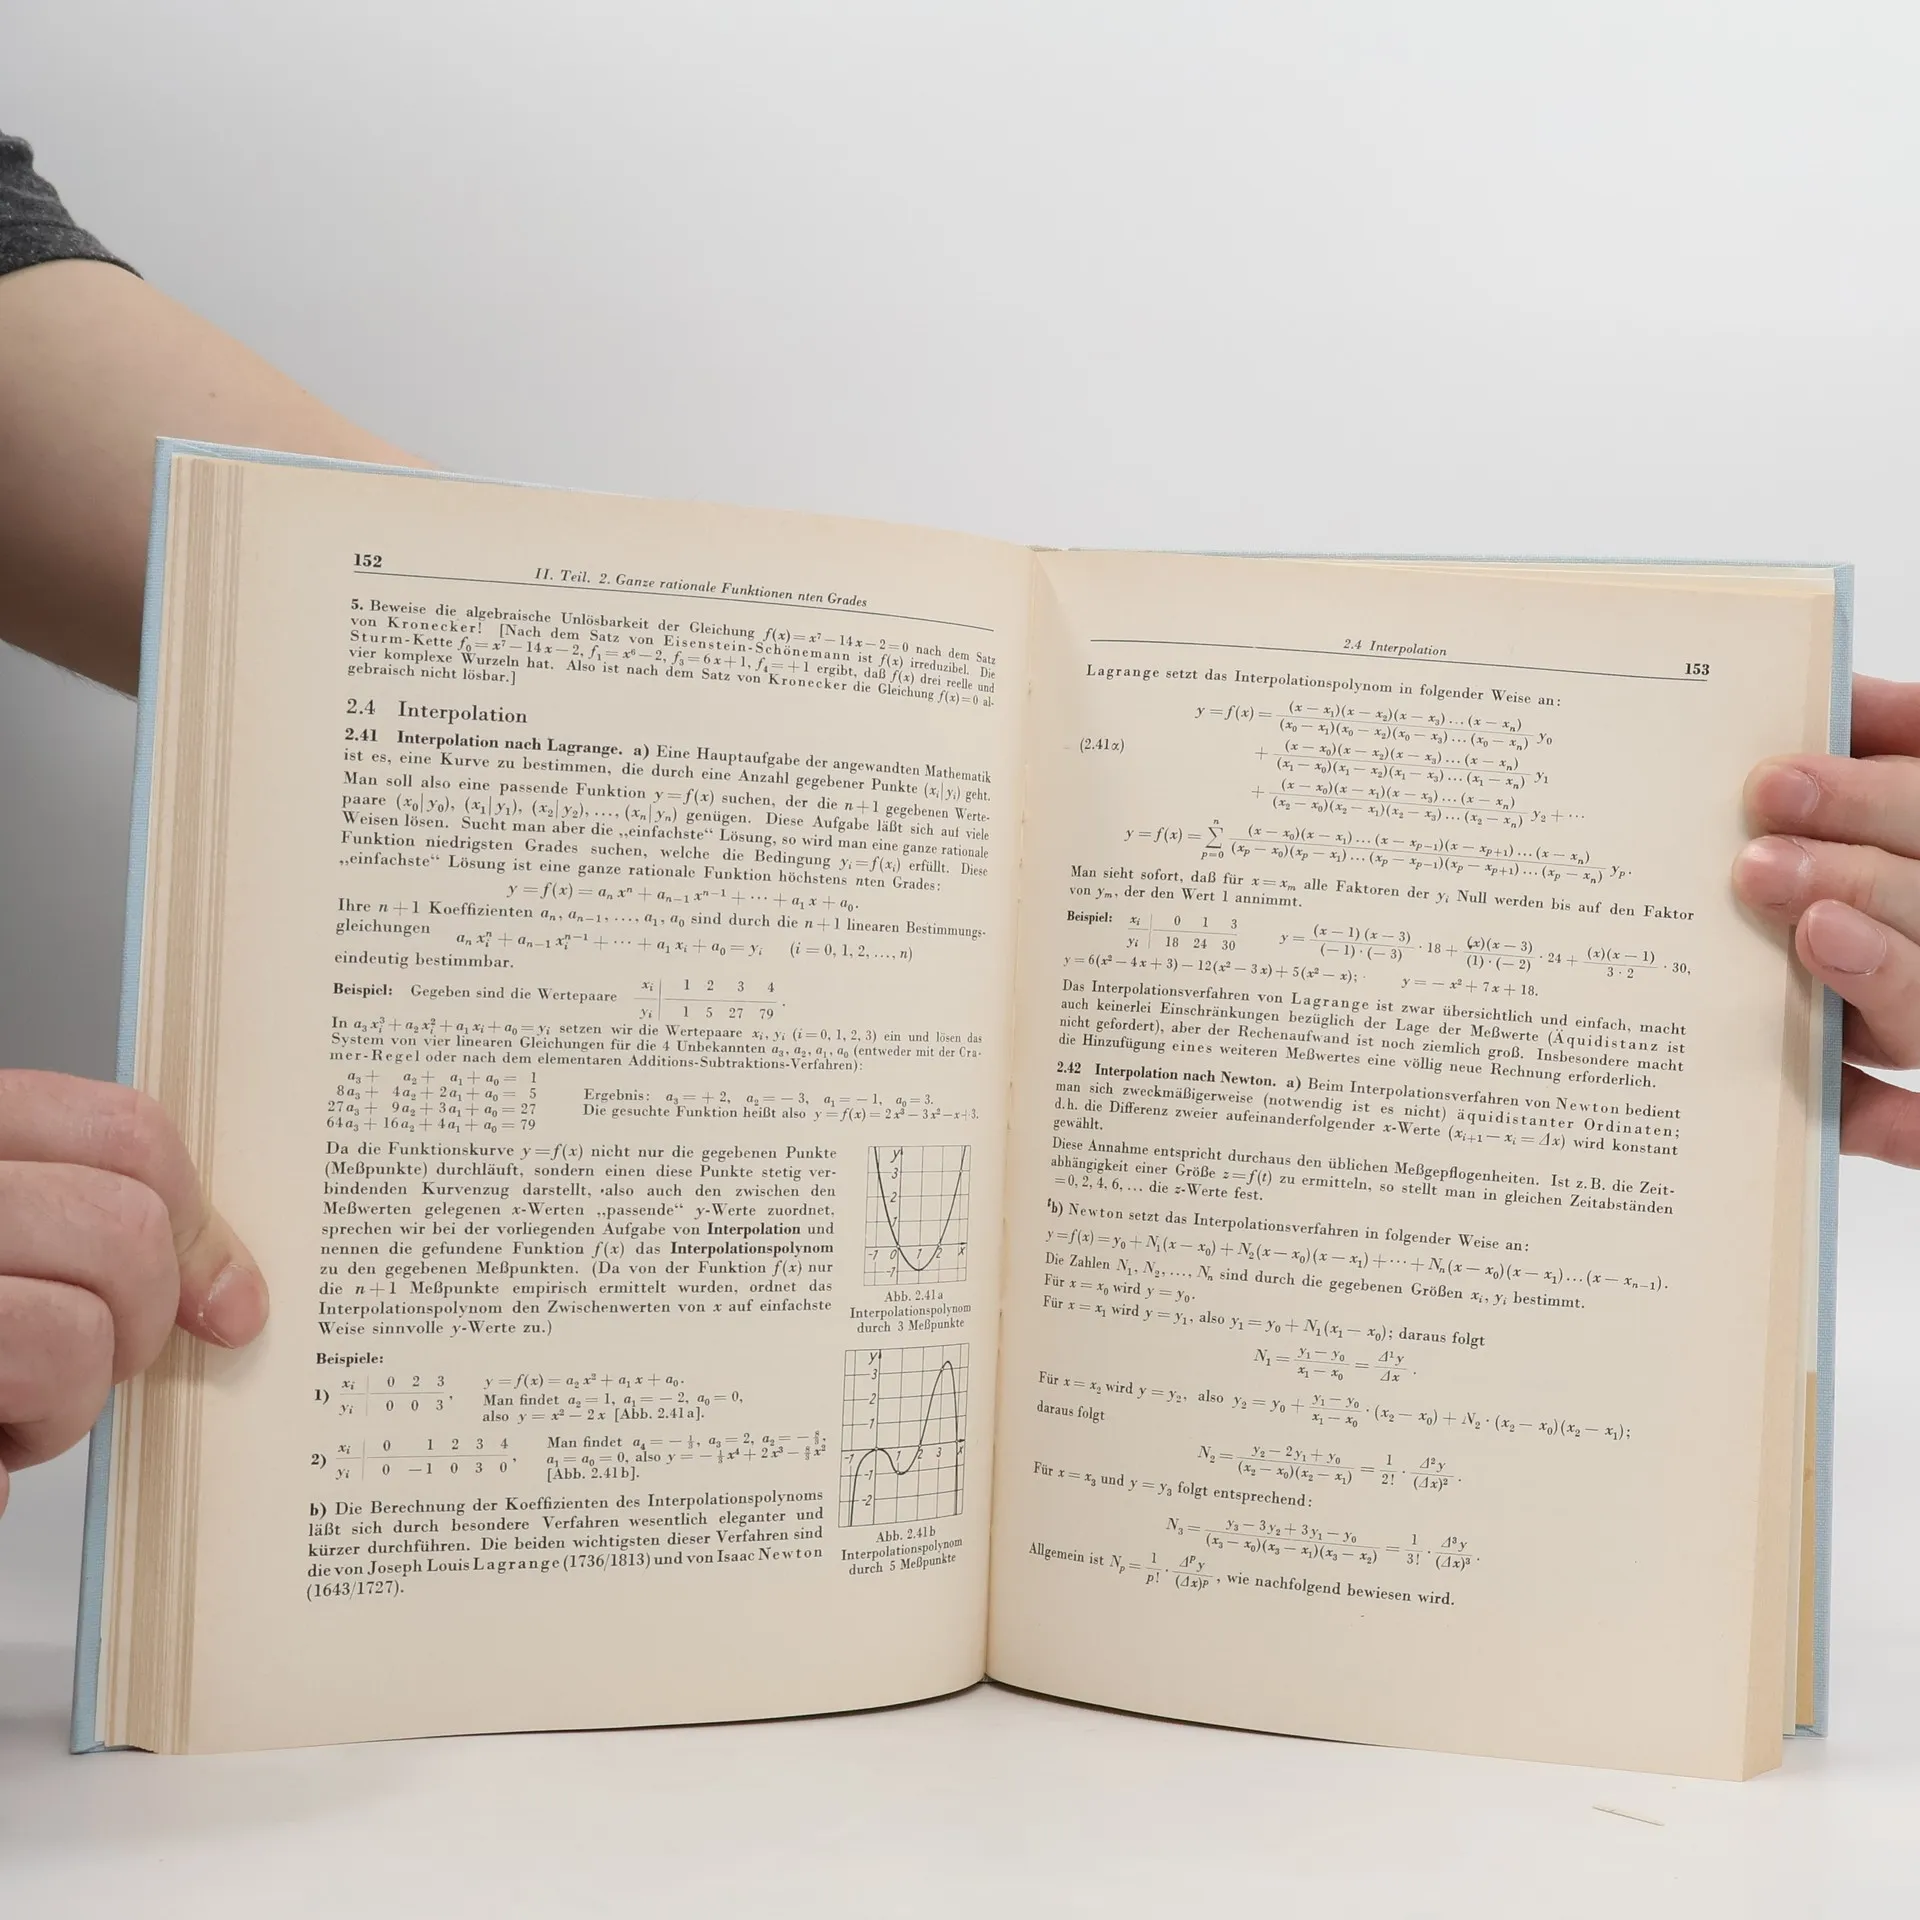 152
II. Teil. 2. Ganze rationale Funktionen nten Grades
5. Beweise die algebraische Unlösbarkeit der Gleichung f(x)=x⁷−14x−2=0 nach dem Satz
von Kronecker! [Nach dem Satz von Eisenstein-Schönemann ist f(x) irreduzibel. Die
Sturm-Kette f₀=x⁷−14x−2, f₁=x⁶−2, f₃=6x+1, f₄=+1 ergibt, daß f(x) drei reelle und
vier komplexe Wurzeln hat. Also ist nach dem Satz von Kronecker die Gleichung f(x)=0 al-
gebraisch nicht lösbar.]
2.4 Interpolation
2.41 Interpolation nach Lagrange. a) Eine Hauptaufgabe der angewandten Mathematik
ist es, eine Kurve zu bestimmen, die durch eine Anzahl gegebener Punkte (xᵢ|yᵢ) geht.
Man soll also eine passende Funktion y=f(x) suchen, der die n+1 gegebenen Werte-
paare (x₀|y₀), (x₁|y₁), (x₂|y₂), ..., (xₙ|yₙ) genügen. Diese Aufgabe läßt sich auf viele
Weisen lösen. Sucht man aber die „einfachste“ Lösung, so wird man eine ganze rationale
Funktion niedrigsten Grades suchen, welche die Bedingung yᵢ=f(xᵢ) erfüllt. Diese
„einfachste“ Lösung ist eine ganze rationale Funktion höchstens nten Grades:
y=f(x)=aₙxⁿ+aₙ₋₁xⁿ⁻¹+···+a₁x+a₀.
Ihre n+1 Koeffizienten aₙ, aₙ₋₁, ..., a₁, a₀ sind durch die n+1 linearen Bestimmungs-
gleichungen
aₙxᵢⁿ+aₙ₋₁xᵢⁿ⁻¹+···+a₁xᵢ+a₀=yᵢ (i=0, 1, 2, ..., n)
eindeutig bestimmbar.
Beispiel: Gegeben sind die Wertepaare
xᵢ | 1 2 3 4
yᵢ | 1 5 27 79 .
In a₃xᵢ³+a₂xᵢ²+a₁xᵢ+a₀=yᵢ setzen wir die Wertepaare xᵢ, yᵢ (i=0, 1, 2, 3) ein und lösen das
System von vier linearen Gleichungen für die 4 Unbekannten a₃, a₂, a₁, a₀ (entweder mit der Cra-
mer-Regel oder nach dem elementaren Additions-Subtraktions-Verfahren):
a₃+ a₂+ a₁+a₀= 1
8a₃+ 4a₂+2a₁+a₀= 5
27a₃+ 9a₂+3a₁+a₀=27
64a₃+16a₂+4a₁+a₀=79
Ergebnis: a₃=+2, a₂=−3, a₁=−1, a₀=3.
Die gesuchte Funktion heißt also y=f(x)=2x³−3x²−x+3.
Da die Funktionskurve y=f(x) nicht nur die gegebenen Punkte
(Meßpunkte) durchläuft, sondern einen diese Punkte stetig ver-
bindenden Kurvenzug darstellt, also auch den zwischen den
Meßwerten gelegenen x-Werten „passende“ y-Werte zuordnet,
sprechen wir bei der vorliegenden Aufgabe von Interpolation und
nennen die gefundene Funktion f(x) das Interpolationspolynom
zu den gegebenen Meßpunkten. (Da von der Funktion f(x) nur
die n+1 Meßpunkte empirisch ermittelt wurden, ordnet das
Interpolationspolynom den Zwischenwerten von x auf einfachste
Weise sinnvolle y-Werte zu.)
y
3
2
1
-1 0 1 2 x
-1
Abb. 2.41a
Interpolationspolynom
durch 3 Meßpunkte
Beispiele:
1) xᵢ | 0 2 3
yᵢ | 0 0 3 ,
y=f(x)=a₂x²+a₁x+a₀.
Man findet a₂=1, a₁=−2, a₀=0,
also y=x²−2x [Abb. 2.41a].
2) xᵢ | 0 1 2 3 4
yᵢ | 0 −1 0 3 0 ,
Man findet a₄=−⅓, a₃=2, a₂=−8/3,
a₁=a₀=0, also y=−⅓x⁴+2x³−8/3x²
[Abb. 2.41b].
y
3
2
1
-1 1 2 3 x
-1
-2
Abb. 2.41b
Interpolationspolynom
durch 5 Meßpunkte
b) Die Berechnung der Koeffizienten des Interpolationspolynoms
läßt sich durch besondere Verfahren wesentlich eleganter und
kürzer durchführen. Die beiden wichtigsten dieser Verfahren sind
die von Joseph Louis Lagrange (1736/1813) und von Isaac Newton
(1643/1727).
2.4 Interpolation
153
Lagrange setzt das Interpolationspolynom in folgender Weise an:
y=f(x)= (x−x₁)(x−x₂)(x−x₃)...(x−xₙ) / (x₀−x₁)(x₀−x₂)(x₀−x₃)...(x₀−xₙ) y₀
(2.41α) + (x−x₀)(x−x₂)(x−x₃)...(x−xₙ) / (x₁−x₀)(x₁−x₂)(x₁−x₃)...(x₁−xₙ) y₁
+ (x−x₀)(x−x₁)(x−x₃)...(x−xₙ) / (x₂−x₀)(x₂−x₁)(x₂−x₃)...(x₂−xₙ) y₂+···
y=f(x)= n∑p=0 (x−x₀)(x−x₁)...(x−xₚ₋₁)(x−xₚ₊₁)...(x−xₙ) / (xₚ−x₀)(xₚ−x₁)...(xₚ−xₚ₋₁)(xₚ−xₚ₊₁)...(xₚ−xₙ) yₚ.
Man sieht sofort, daß für x=xₘ alle Faktoren der yᵢ Null werden bis auf den Faktor
von yₘ, der den Wert 1 annimmt.
Beispiel: xᵢ | 0 1 3
yᵢ | 18 24 30
y= (x−1)(x−3) / (−1)·(−3) ·18+ (x)(x−3) / (1)·(−2) ·24+ (x)(x−1) / 3·2 ·30,
y=6(x²−4x+3)−12(x²−3x)+5(x²−x); y=−x²+7x+18.
Das Interpolationsverfahren von Lagrange ist zwar übersichtlich und einfach, macht
auch keinerlei Einschränkungen bezüglich der Lage der Meßwerte (Äquidistanz ist
nicht gefordert), aber der Rechenaufwand ist noch ziemlich groß. Insbesondere macht
die Hinzufügung eines weiteren Meßwertes eine völlig neue Rechnung erforderlich.
2.42 Interpolation nach Newton. a) Beim Interpolationsverfahren von Newton bedient
man sich zweckmäßigerweise (notwendig ist es nicht) äquidistanter Ordinaten;
d.h. die Differenz zweier aufeinanderfolgender x-Werte (xᵢ₊₁−xᵢ=Δx) wird konstant
gewählt.
Diese Annahme entspricht durchaus den üblichen Meßgepflogenheiten. Ist z.B. die Zeit-
abhängigkeit einer Größe z=f(t) zu ermitteln, so stellt man in gleichen Zeitabständen
t=0, 2, 4, 6, ... die z-Werte fest.
b) Newton setzt das Interpolationsverfahren in folgender Weise an:
y=f(x)=y₀+N₁(x−x₀)+N₂(x−x₀)(x−x₁)+···+Nₙ(x−x₀)(x−x₁)...(x−xₙ₋₁).
Die Zahlen N₁, N₂, ..., Nₙ sind durch die gegebenen Größen xᵢ, yᵢ bestimmt.
Für x=x₀ wird y=y₀.
Für x=x₁ wird y=y₁, also y₁=y₀+N₁(x₁−x₀); daraus folgt
N₁= (y₁−y₀) / (x₁−x₀) = Δ¹y / Δx .
Für x=x₂ wird y=y₂, also y₂=y₀+ (y₁−y₀) / (x₁−x₀) ·(x₂−x₀)+N₂·(x₂−x₀)(x₂−x₁);
daraus folgt
N₂= (y₂−2y₁+y₀) / (x₂−x₀)(x₂−x₁) = 1/2! · Δ²y / (Δx)² .
Für x=x₃ und y=y₃ folgt entsprechend:
N₃= (y₃−3y₂+3y₁−y₀) / (x₃−x₀)(x₃−x₁)(x₃−x₂) = 1/3! · Δ³y / (Δx)³ .
Allgemein ist Nₚ= 1/p! · Δᵖy / (Δx)ᵖ , wie nachfolgend bewiesen wird.